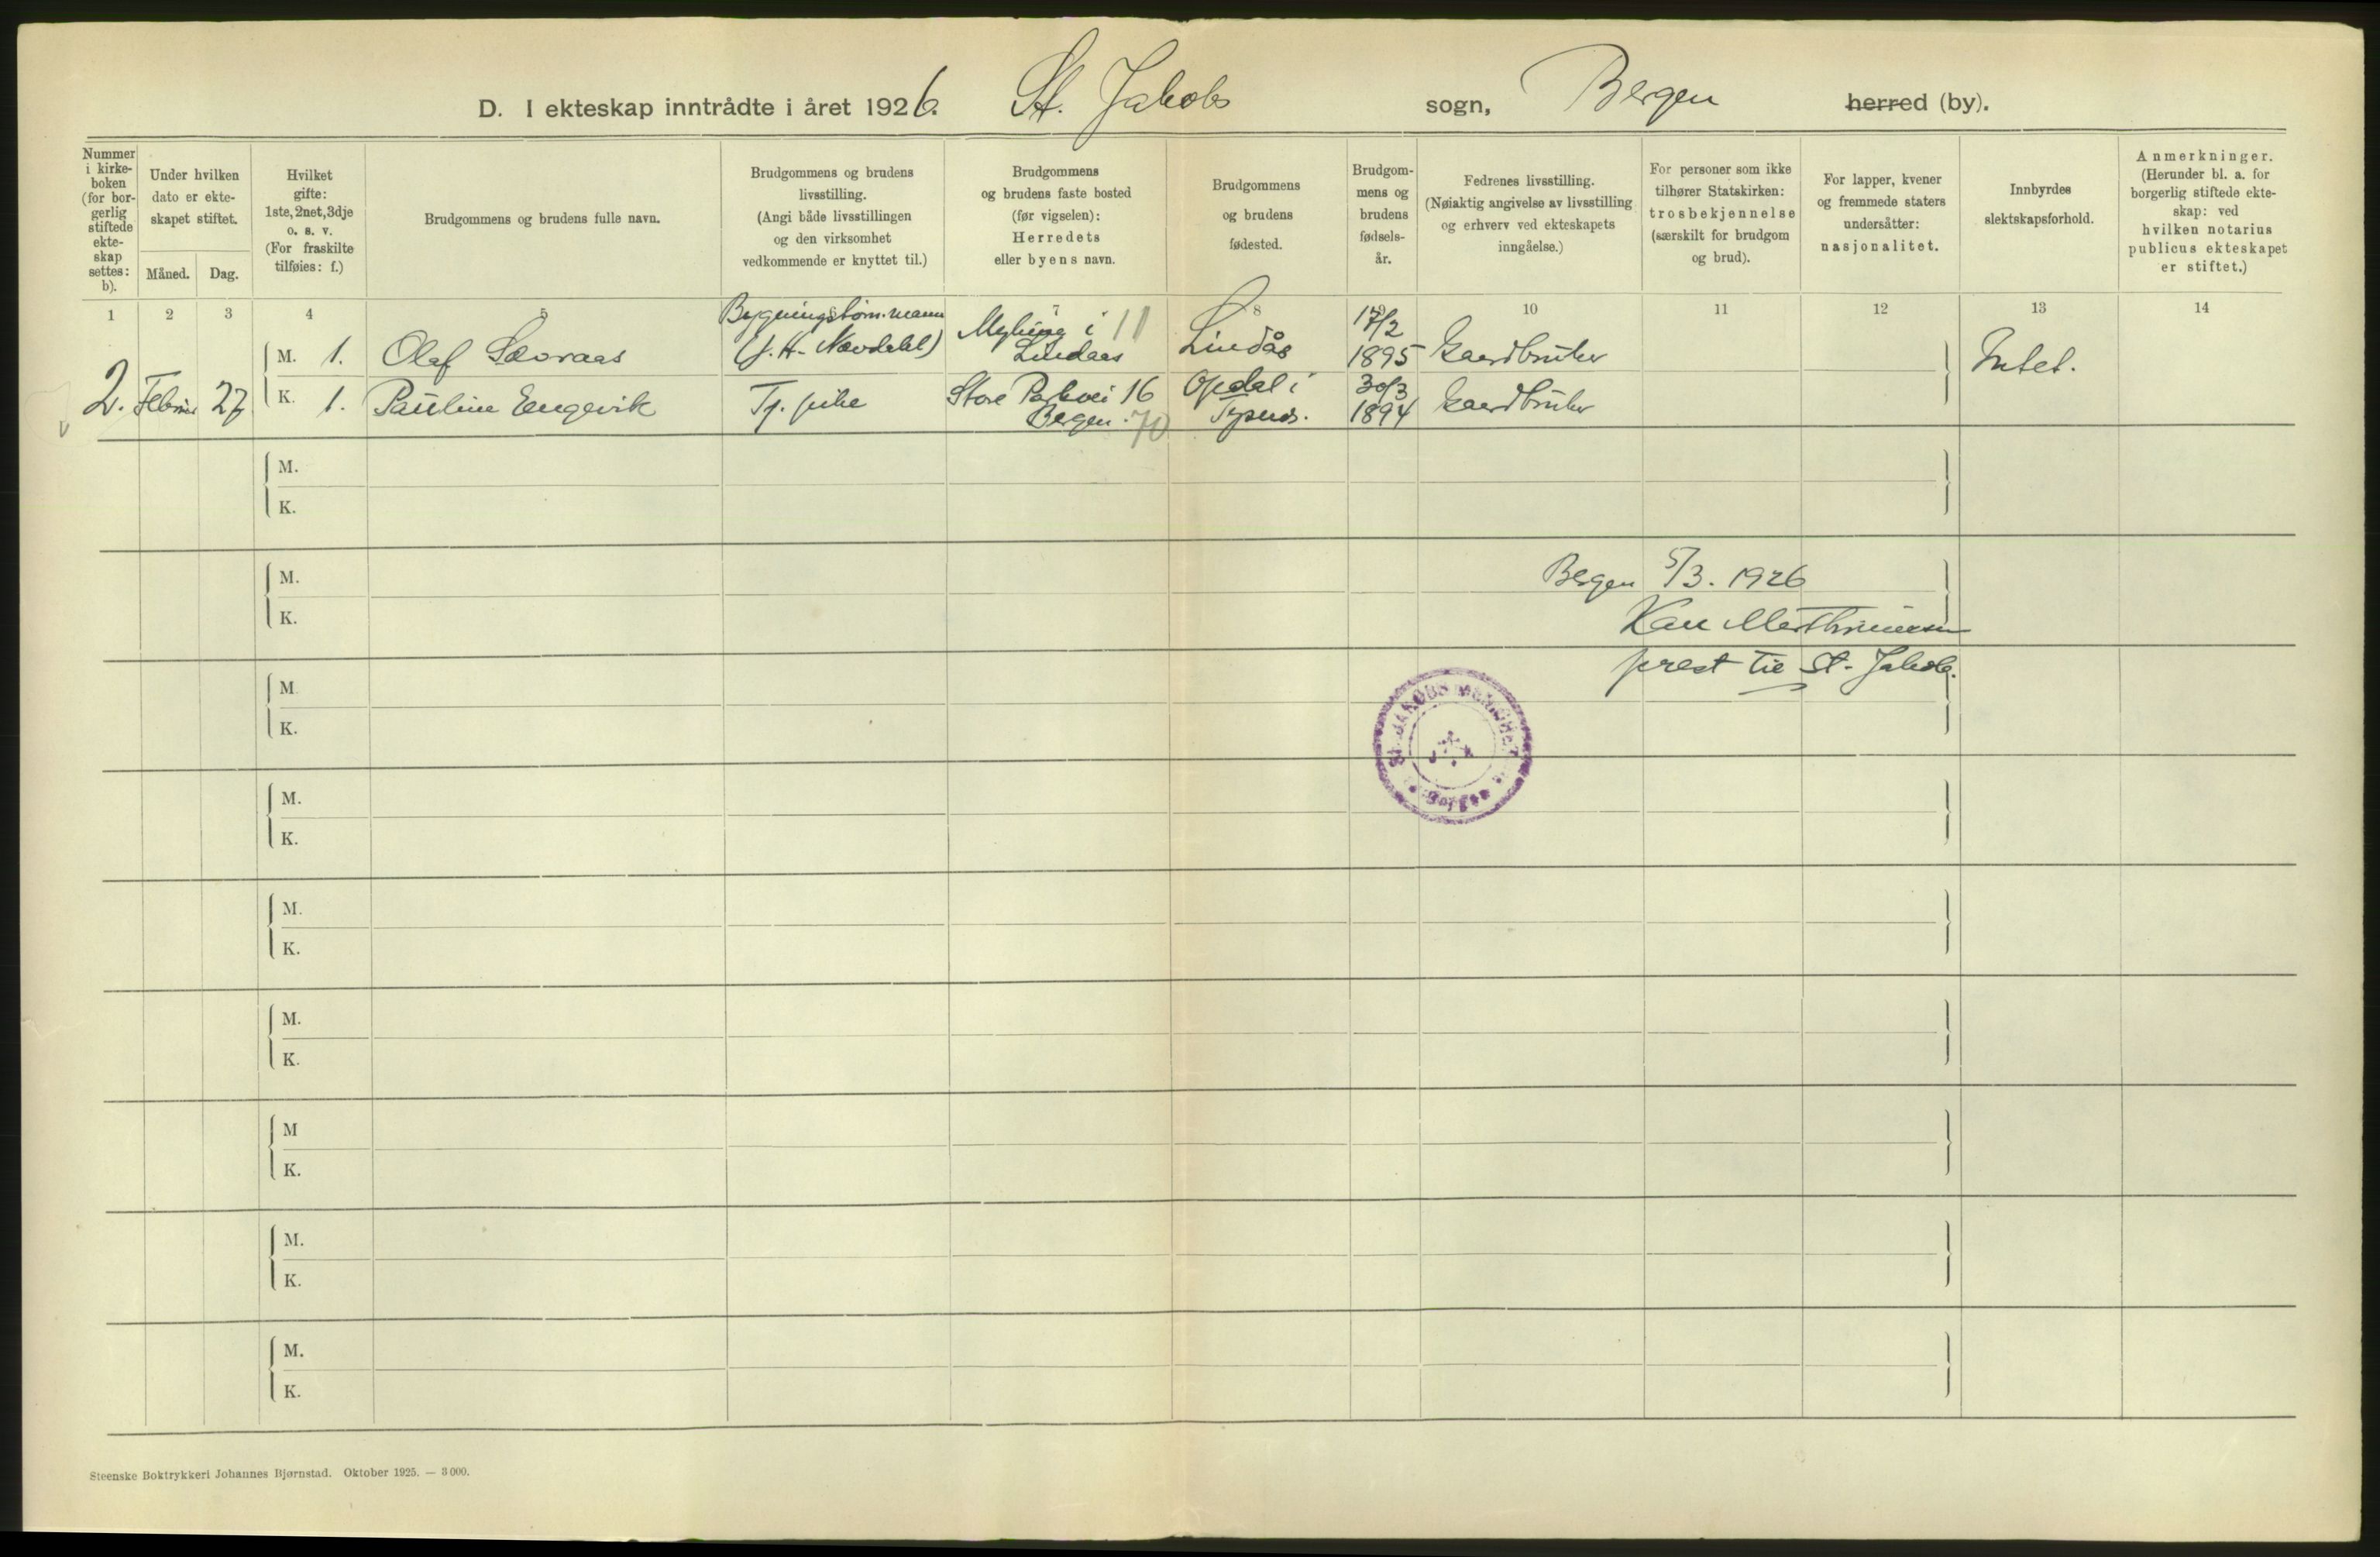 D. I ekteskap inntrådte i året 1926. St. Jakobs sogn, Bergen herred (by).
Nummer i kirke-boken (for bor-gerlig stiftede ekte-skap settes: b).
Under hvilken dato er ekte-skapet stiftet.
Måned. Dag.
Hvilket gifte: 1ste, 2net, 3dje o. s. v. (For fraskilte tilføies: f.)
Brudgommens og brudens fulle navn.
Brudgommens og brudens livsstilling. (Angi både livsstillingen og den virksomhet vedkommende er knyttet til.)
Brudgommens og brudens faste bosted (før vigselen): Herredets eller byens navn.
Brudgommens og brudens fødested.
Brudgom-mens og brudens fødsels-år.
Fedrenes livsstilling. (Nøiaktig angivelse av livsstilling og erhverv ved ekteskapets inngåelse.)
For personer som ikke tilhører Statskirken: trosbekjennelse (særskilt for brudgom og brud).
For lapper, kvener og fremmede staters undersåtter: nasjonalitet.
Innbyrdes slektskapsforhold.
Anmerkninger. (Herunder bl. a. for borgerlig stiftede ekte-skap: ved hvilken notarius publicus ekteskapet er stiftet.)
1 2 3 4 5 6 7 8 9 10 11 12 13 14
M. 1. Olaf Sævraas Bygningstøm.mann (f. H. Nævdahl) Myking i Lindaas 11 Lindås 17/2 1895 Gaardbruker Intet.
2. Februar 27 K. 1. Pauline Engevik Tj. pike Store Parkvei 16 Bergen. 70 Opdal i Tysnes. 30/3 1894 Gaardbruker
M.
K.
M.
K.
Bergen 5/3. 1926
prest til St. Jakob.
M.
K.
ST. JAKOBS MENIGHET
M.
K.
M.
K.
M.
K.
M
K.
M.
K.
M.
K.
Steenske Boktrykkeri Johannes Bjørnstad. Oktober 1925. — 3 000.